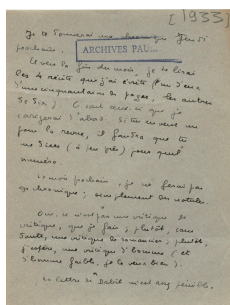 [1933]
Je te donnerai une chronique Jeudi
prochain.
ARCHIVES PAU...
Et vers la fin du mois, je te lirai
les 4 récits que j'ai écrits (l'un d'eux a
une cinquantaine de pages, les autres
30 35). C'est ceux-ci que je
d'abord. Si tu en veux un
pour la revue, il faudra que tu
me dises (à peu près) pour quel
numéro.
Le mois prochain, je ne ferai pas
de chronique; seulement des notules.
Oui, ce n'est pas une critique de
critique, que je fais; plutôt, sans
doute, une critique de romancier; plutôt,
j'espère, une critique d'homme (et
d'homme faible, je le veux bien).
La lettre de Dabit m'est assez pénible.